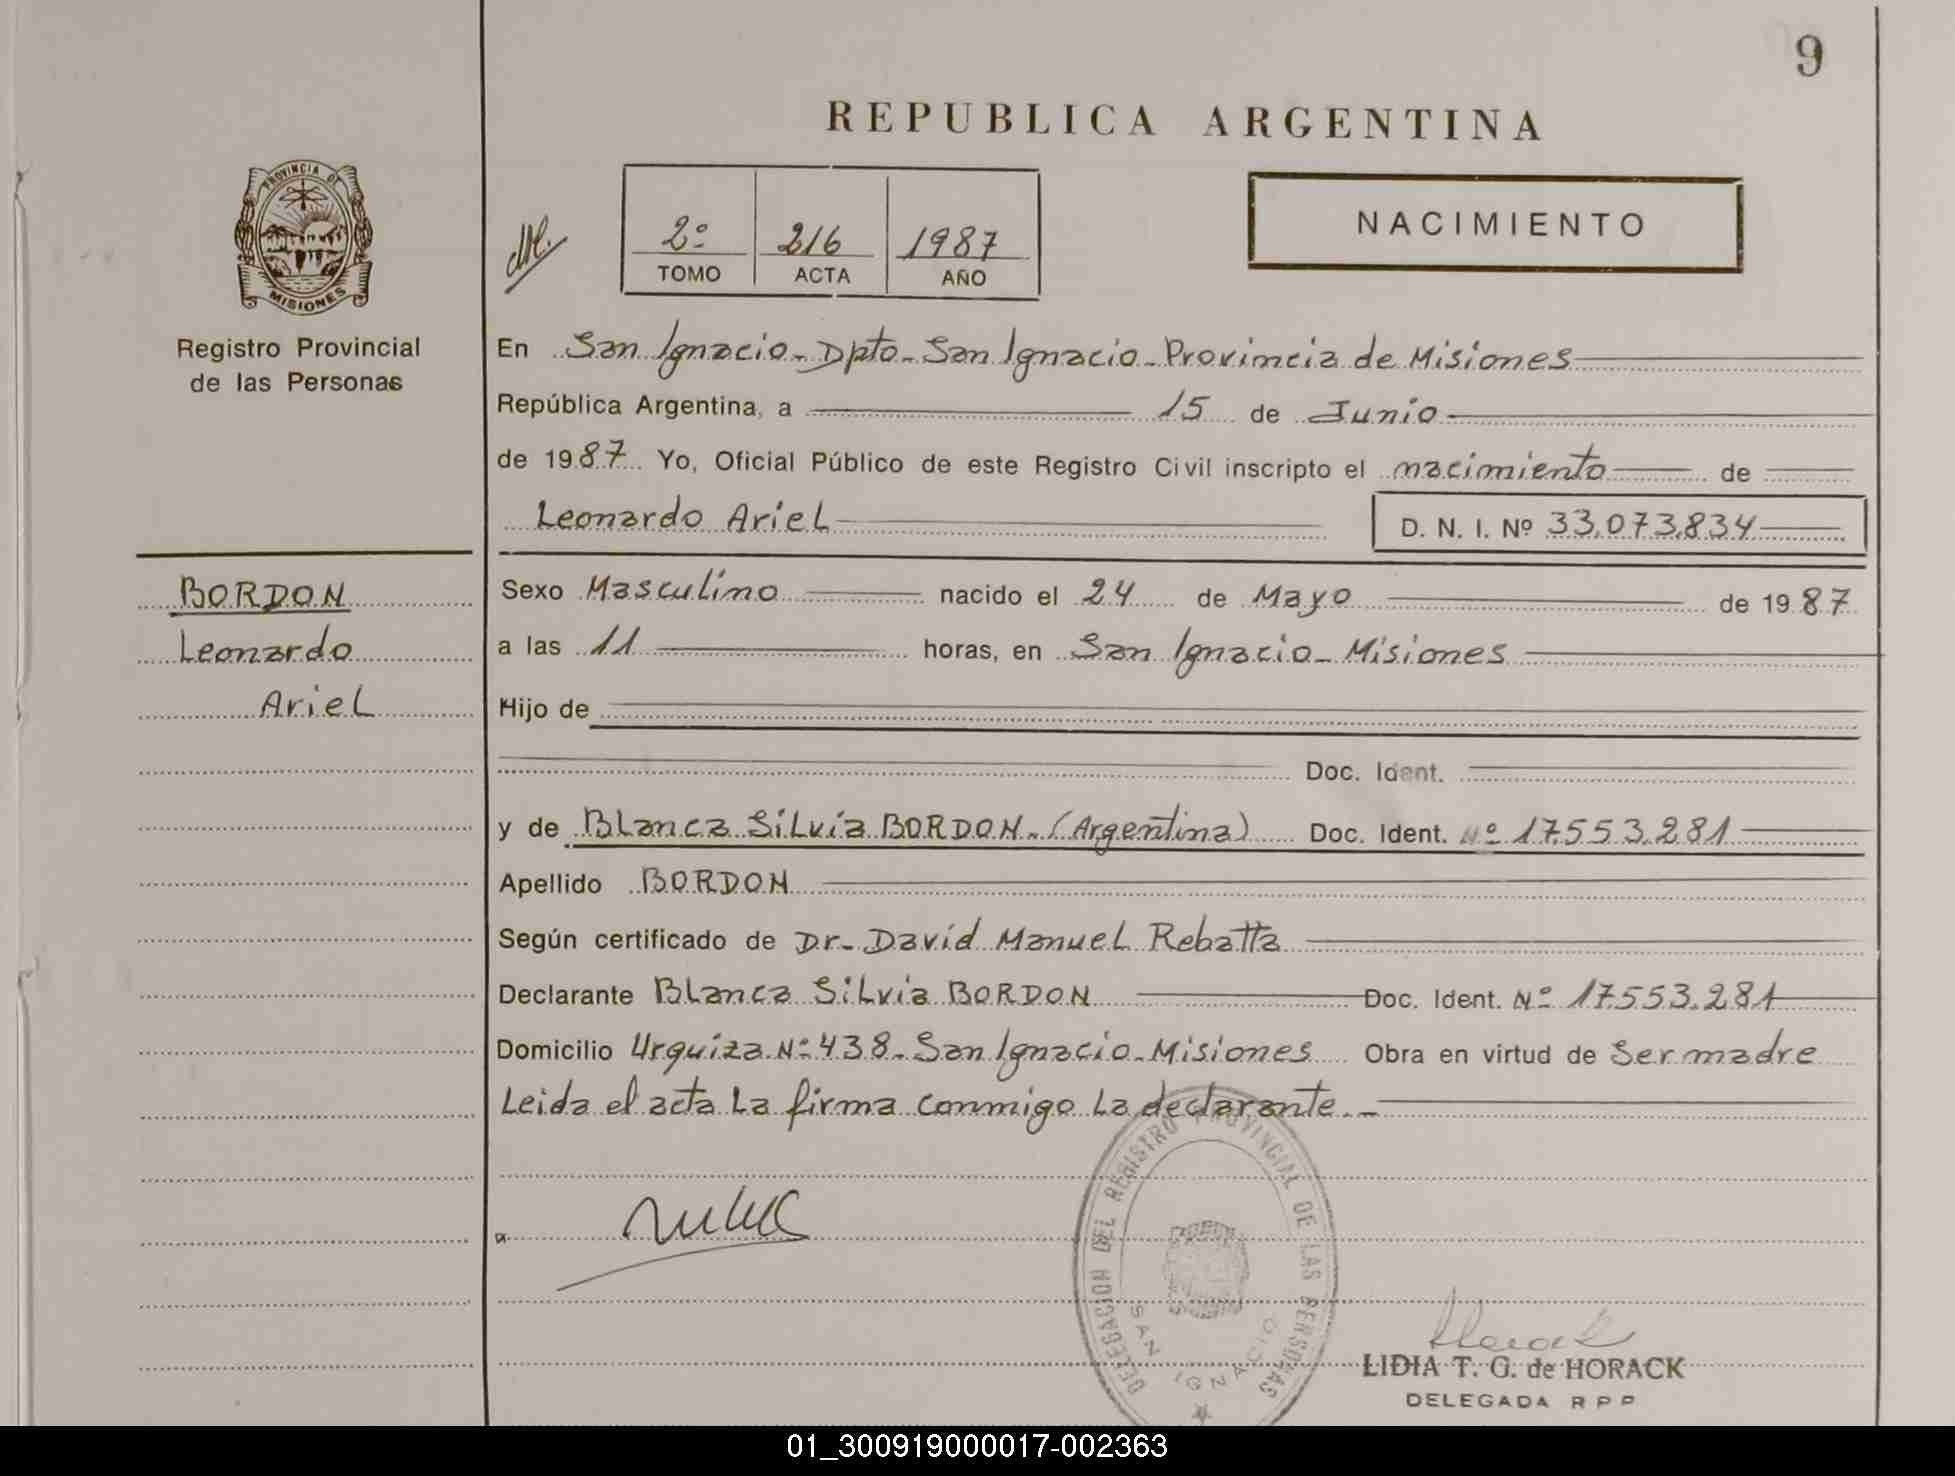 9
REPUBLICA ARGENTINA
PROVINCIA DE
MISIONES
Registro Provincial
de las Personas
2º 216 1987
TOMO ACTA AÑO
NACIMIENTO
En San Ignacio - Dpto - San Ignacio - Provincia de Misiones
República Argentina, a 15 de Junio
de 1987 Yo, Oficial Público de este Registro Civil inscripto el nacimiento de
Leonardo Ariel D. N. I. Nº 33.073.834
BORDON
Leonardo
Ariel
Sexo Masculino nacido el 24 de Mayo de 1987
a las 11 horas, en San Ignacio - Misiones
Hijo de
Doc. Ident.
y de Blanca Silvia BORDON - (Argentina) Doc. Ident. Nº 17.553.281
Apellido BORDON
Según certificado de Dr. David Manuel Rebatta
Declarante Blanca Silvia BORDON Doc. Ident. Nº 17.553.281
Domicilio Urquiza Nº 438 - San Ignacio - Misiones Obra en virtud de Ser madre
Leida el acta La firma conmigo La declarante. -
DELEGACION DEL REGISTRO PROVINCIAL DE LAS PERSONAS
SAN IGNACIO
LIDIA T. G. de HORACK
DELEGADA R P P
01_300919000017-002363